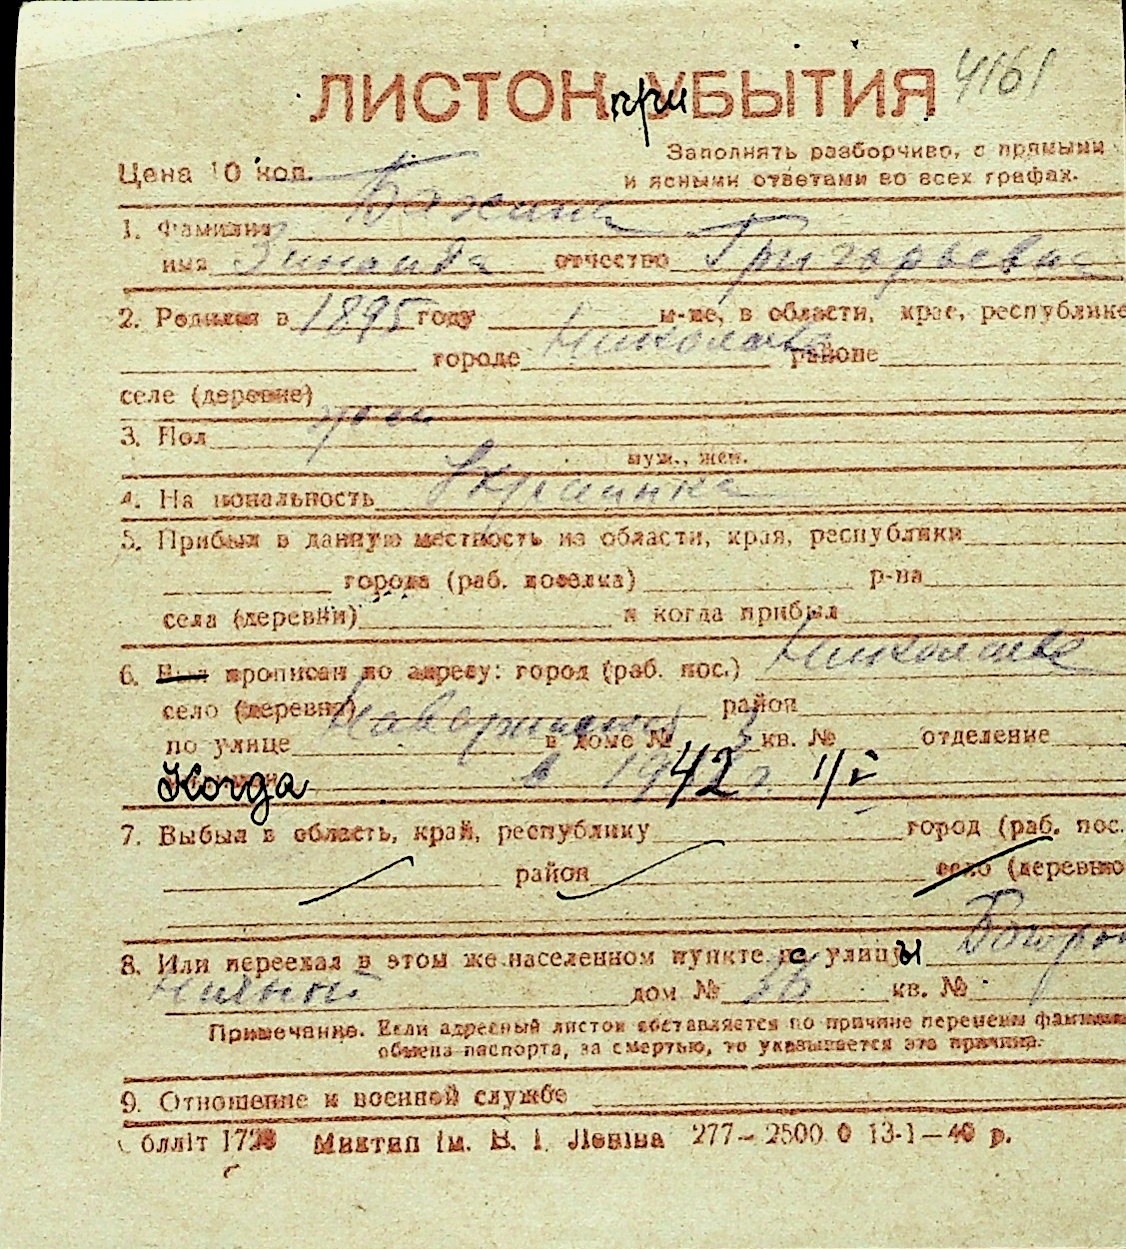 ЛИСТОК при УБЫТИЯ 4161
Заполнять разборчиво, с прямыми
Цена 10 коп. и ясными ответами во всех графах.
1. Фамилия Бажина
имя Зинаида отчество Григорьевна
2. Родился в 1895 году м-це, в области, крае, республике
городе Николаев районе
селе (деревне)
3. Пол жен
муж., жен.
4. Национальность Украинка
5. Прибыл в данную местность из области, края, республики
города (раб. поселка) р-на
села (деревни) и когда прибыл
6. Был прописан по адресу: город (раб. пос.) Николаев
село (деревня) район
по улице в доме № 3 кв. № отделение
Когда в 1942 г
7. Выбыл в область, край, республику город (раб. пос.
район село (деревню
8. Или переехал в этом же населенном пункте с улицы
дом № 16 кв. №
Примечание. Если адресный листок составляется по причине перемены фамилии
обмена паспорта, за смертью, то указывается эта причина.
9. Отношение к военной службе
Облліт 172 Миктип ім. В. І. Леніна 277–2500 0 13-1–40 р.